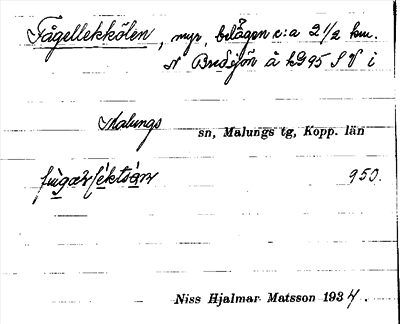 Fågellekkölen, myr, belägen c:a 2 1/2 km.
N Bredsjön å kb 95 S V i
Malungs sn, Malungs tg, Kopp. län
950.
Niss Hjalmar Matsson 1934.